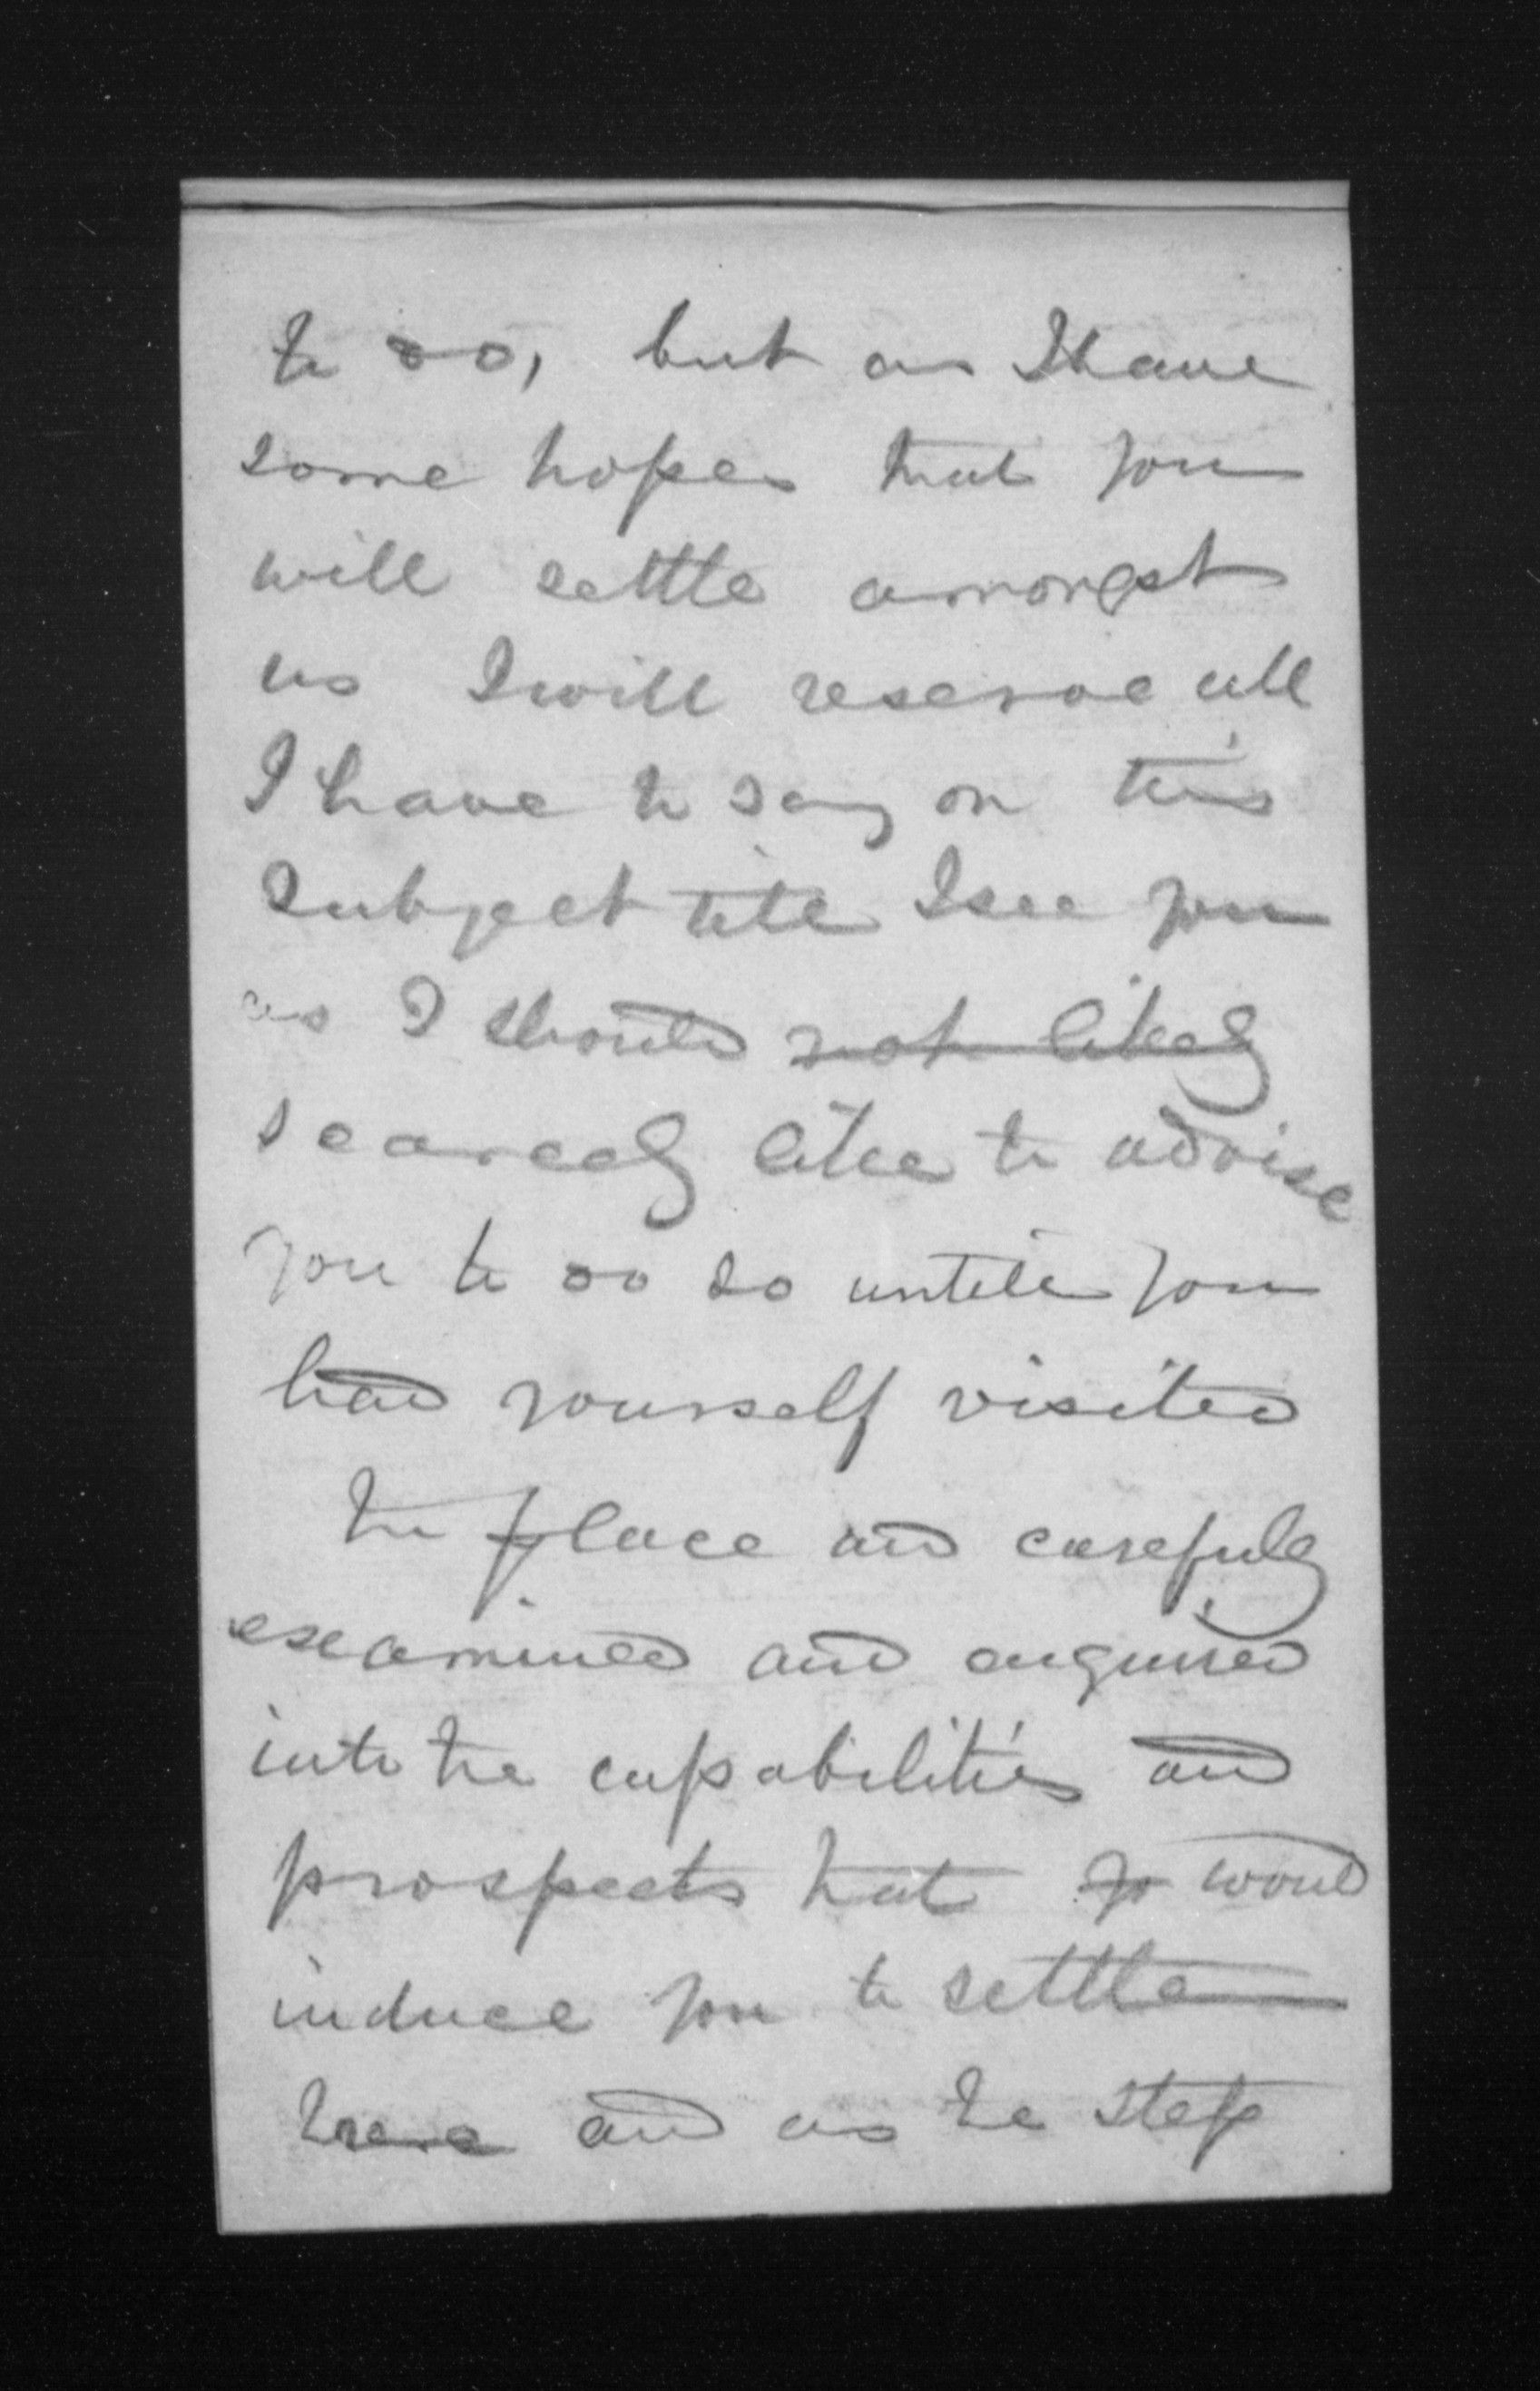 to do, but as I have
some hopes that you
will settle amongst
us I will reserve all
I have to say on this
subject till I see you
as I should not likely
scarcely like to advise
you to do so untill you
had yourself visited
the place and carefuly
examined and enquired
into the capabilities and
prospects that yo would
induce you to settle
here and as the step